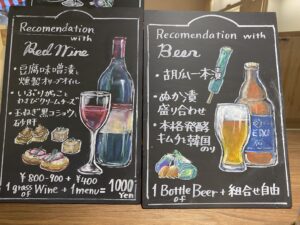 Recomendation
with
Red Wine
・豆腐味噌漬と
燻製オリーブオイル
・いぶりがっこと
わさびクリームチーズ
・玉ねぎ黒コショウ、
砂肝
¥800-900 + ¥400
1 grass of Wine + 1 menu = 1000 Yen
Recomendation with
Beer
・胡瓜一本漬
・ぬか漬
盛り合わせ
・本格発酵
キムチと韓国
のり
1 Bottle of Beer + 組合せ自由